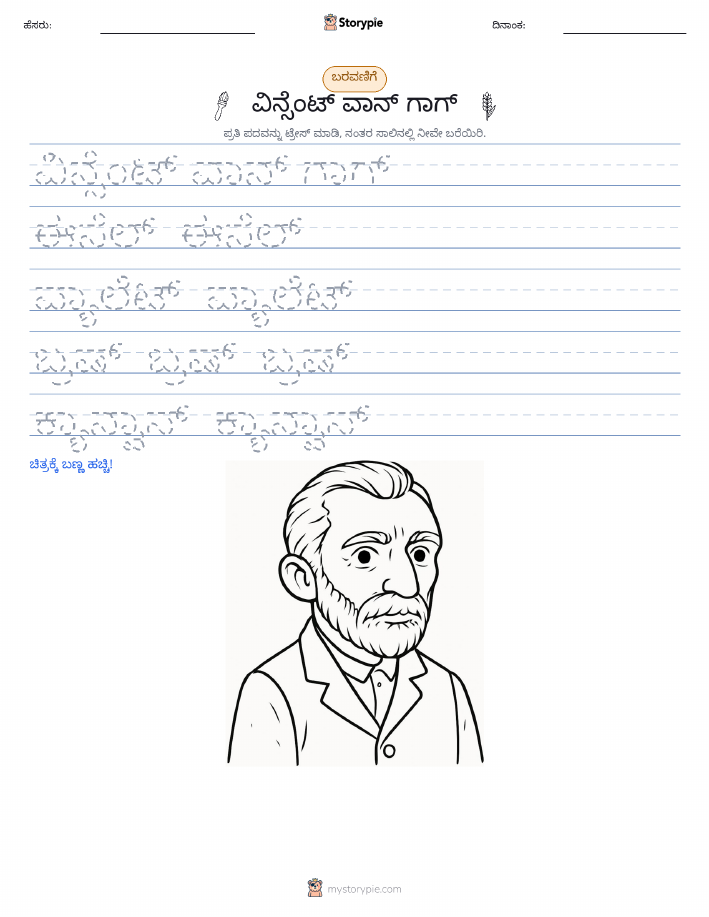 ಹೆಸರು: Storypie ದಿನಾಂಕ:
ಬರವಣಿಗೆ
ವಿನ್ಸೆಂಟ್ ವಾನ್ ಗಾಗ್
ಪ್ರತಿ ಪದವನ್ನು ಟ್ರೇಸ್ ಮಾಡಿ, ನಂತರ ಸಾಲಿನಲ್ಲಿ ನೀವೇ ಬರೆಯಿರಿ.
ವಿನ್ಸೆಂಟ್ ವಾನ್ ಗಾಗ್
ಈಸೆಲ್ ಈಸೆಲ್
ಪ್ಯಾಲೆಟ್ ಪ್ಯಾಲೆಟ್
ಬ್ರಷ್ ಬ್ರಷ್ ಬ್ರಷ್
ಕ್ಯಾನ್ವಾಸ್ ಕ್ಯಾನ್ವಾಸ್
ಚಿತ್ರಕ್ಕೆ ಬಣ್ಣ ಹಚ್ಚಿ!
mystorypie.com